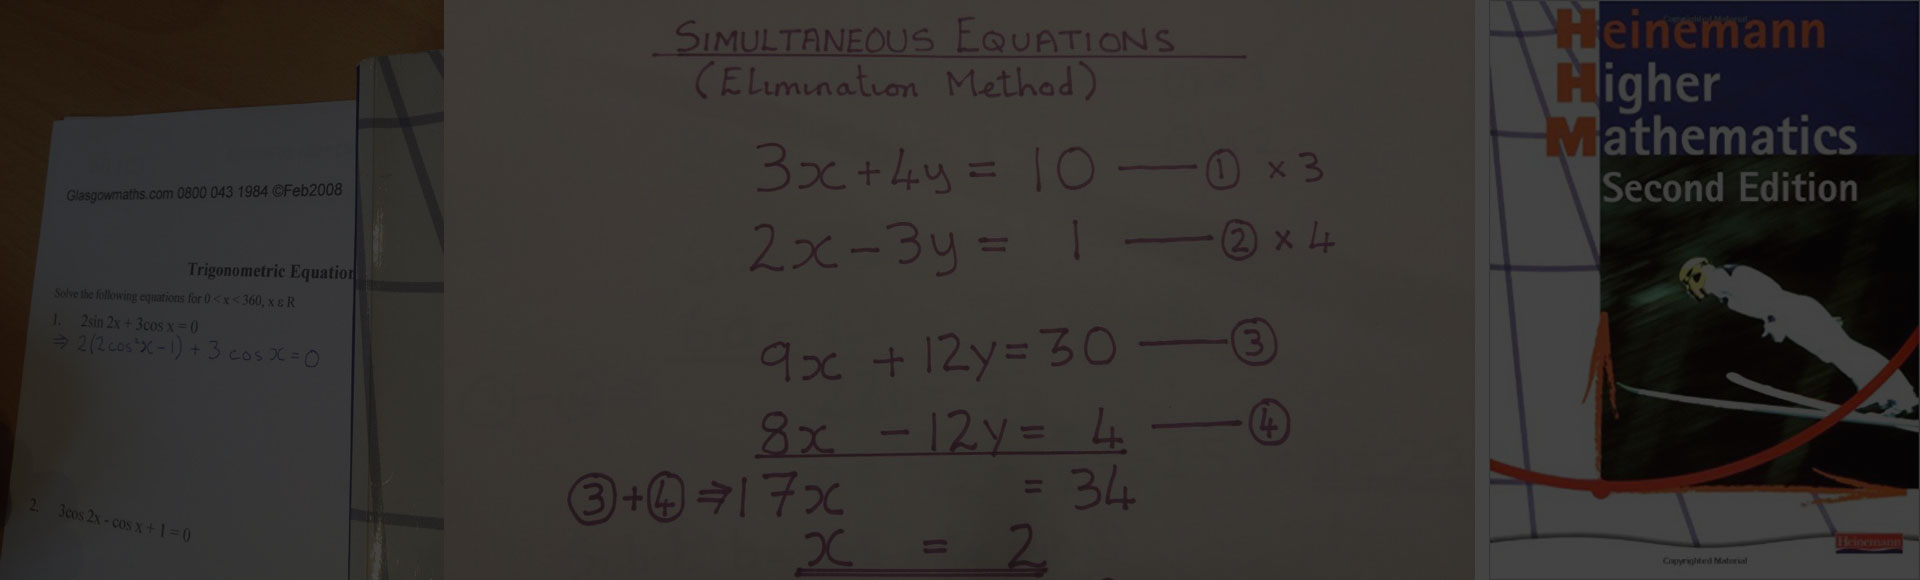 Glasgowmaths.com 0800 043 1984 ©Feb2008
Trigonometric Equation
Solve the following equations for 0 < x < 360, x ε R
1. 2sin 2x + 3cos x = 0
⇒ 2(2cos²x - 1) + 3 cos x = 0
2. 3cos 2x - cos x + 1 = 0
SIMULTANEOUS EQUATIONS
(Elimination Method)
3x + 4y = 10 — ① × 3
2x - 3y = 1 — ② × 4
9x + 12y = 30 — ③
8x - 12y = 4 — ④
③ + ④ ⇒ 17x = 34
x = 2
Copyrighted Material
Heinemann
Higher
Mathematics
Second Edition
Heinemann
Copyrighted Material